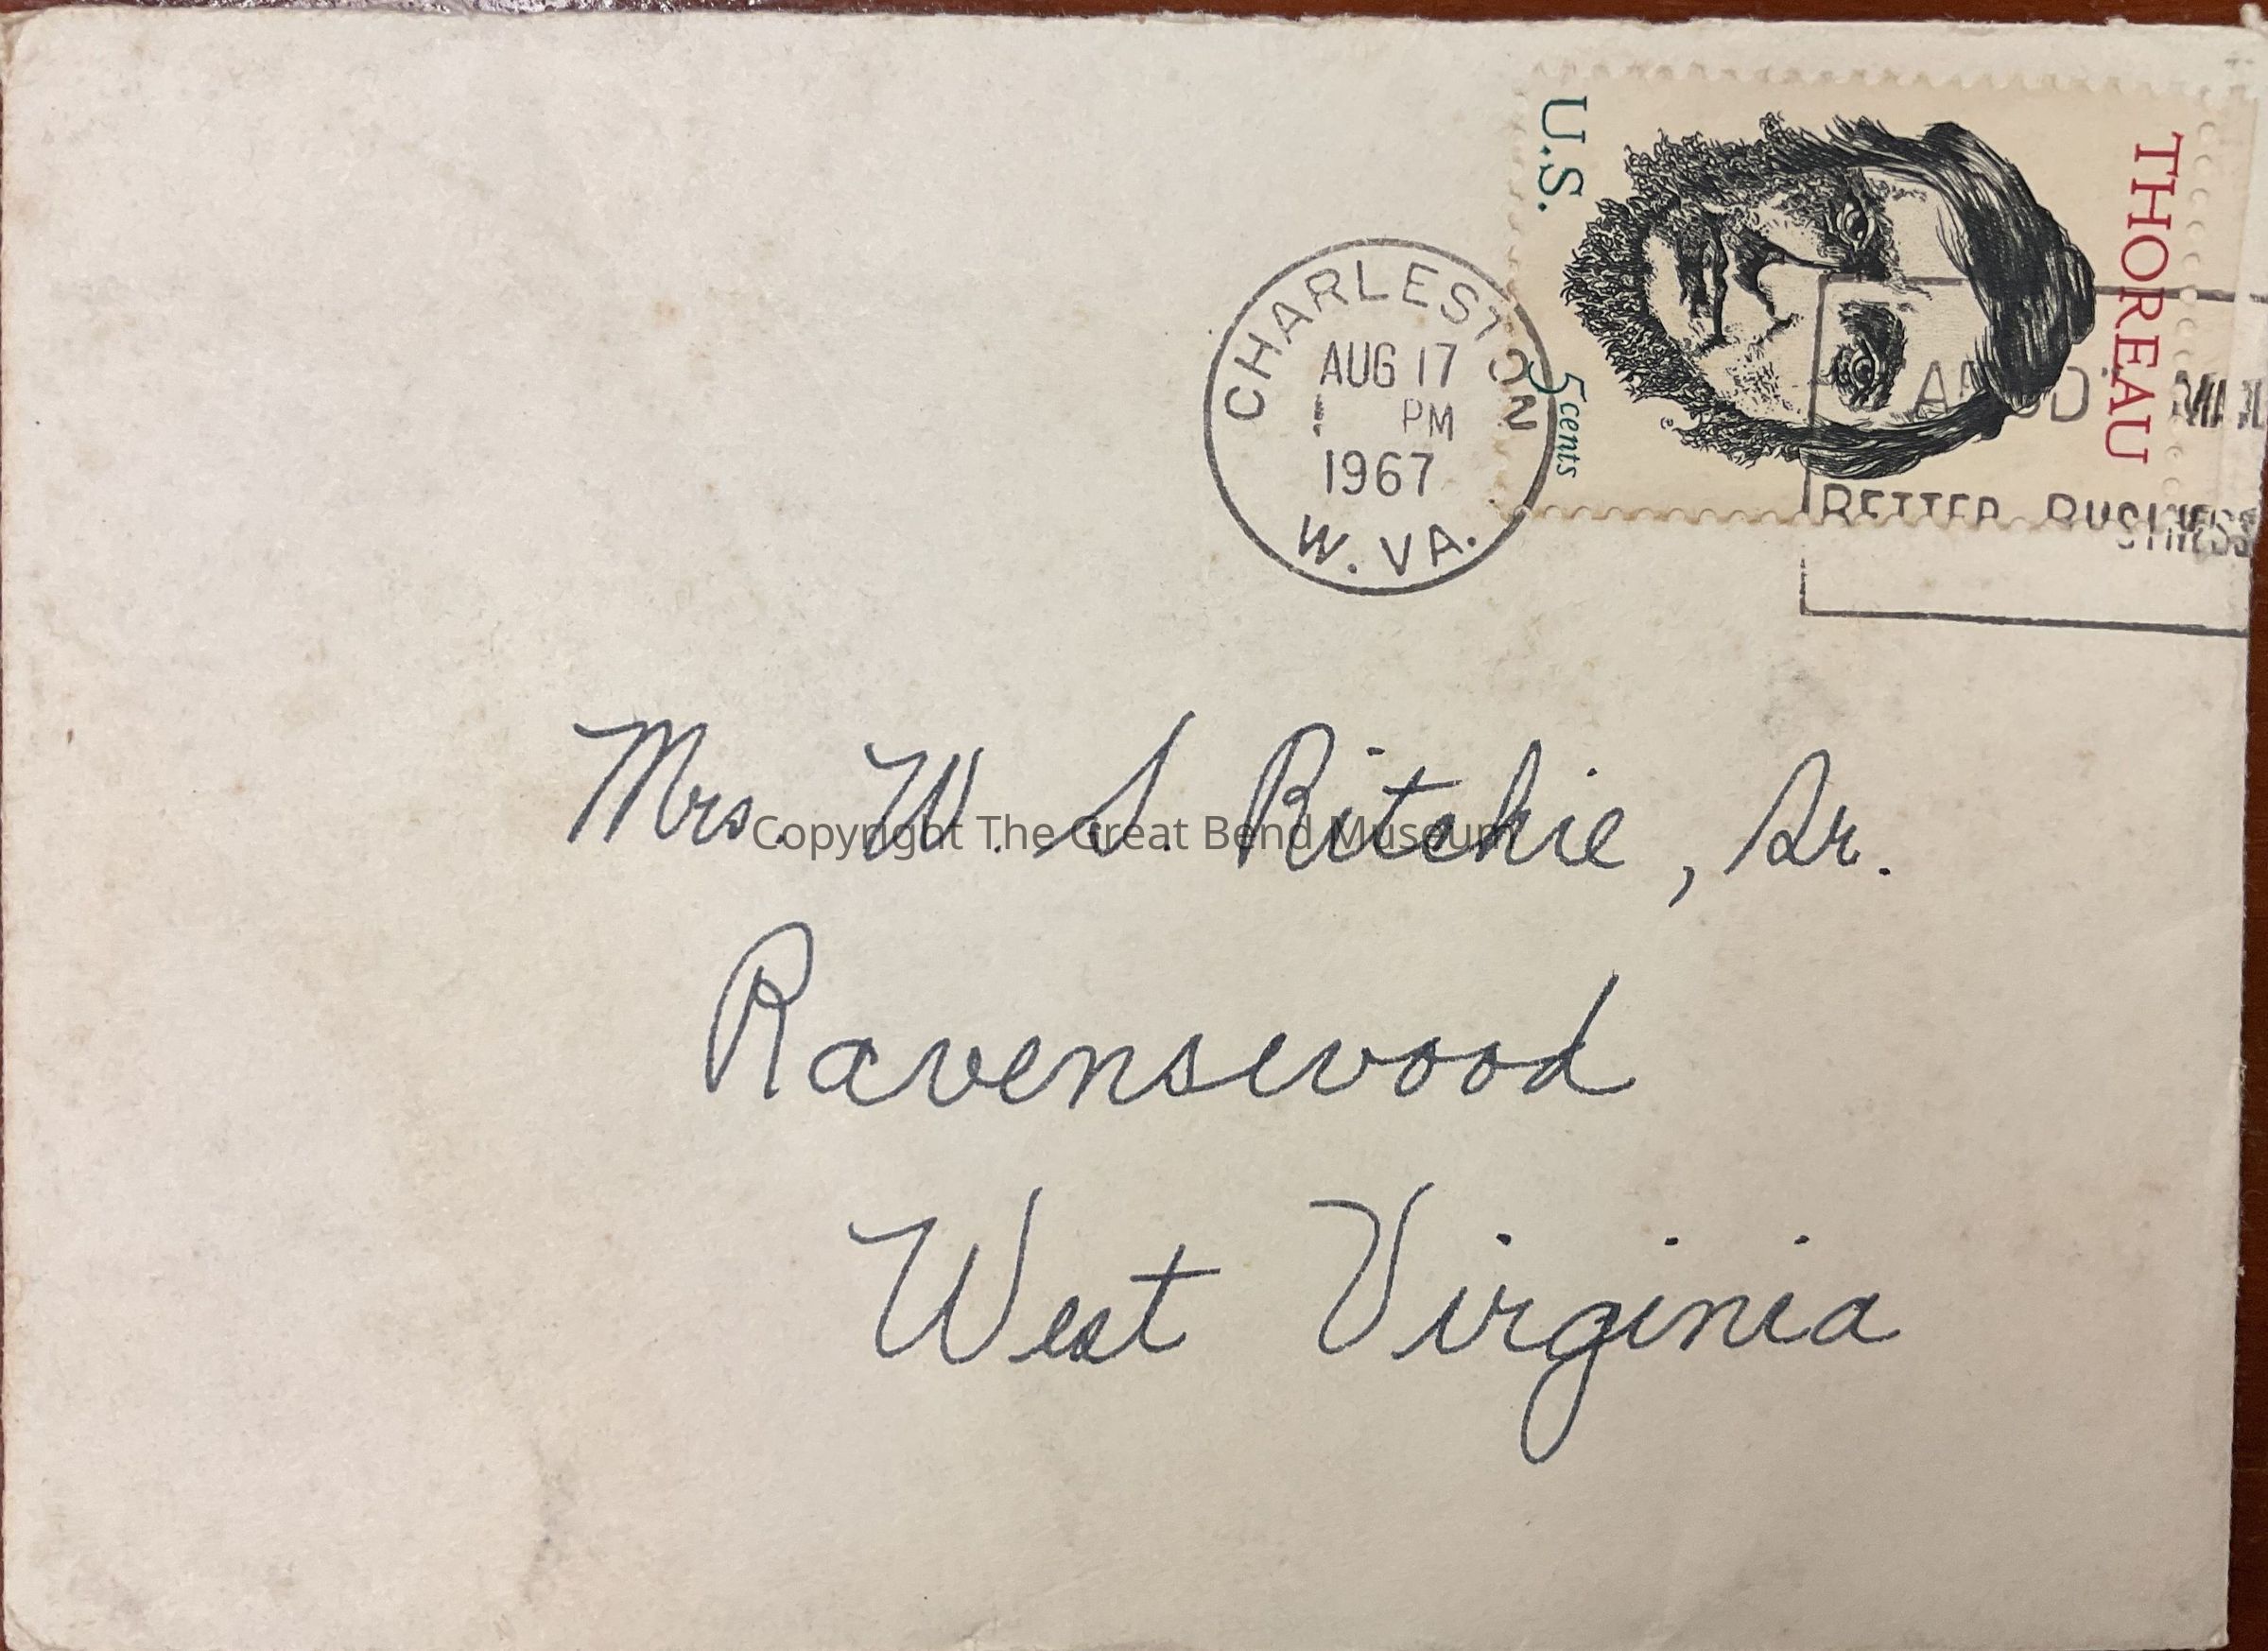 U.S.
THOREAU
5 cents
CHARLESTON
AUG 17
1 PM
1967
W. VA.
BETTER BUSINESS
Mrs. W. S. Ritchie, Sr.
Copyright The Great Bend Museum
Ravenswood
West Virginia